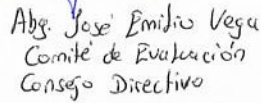 Abg. José Emilio Vega
Comité de Evaluación
Consejo Directivo